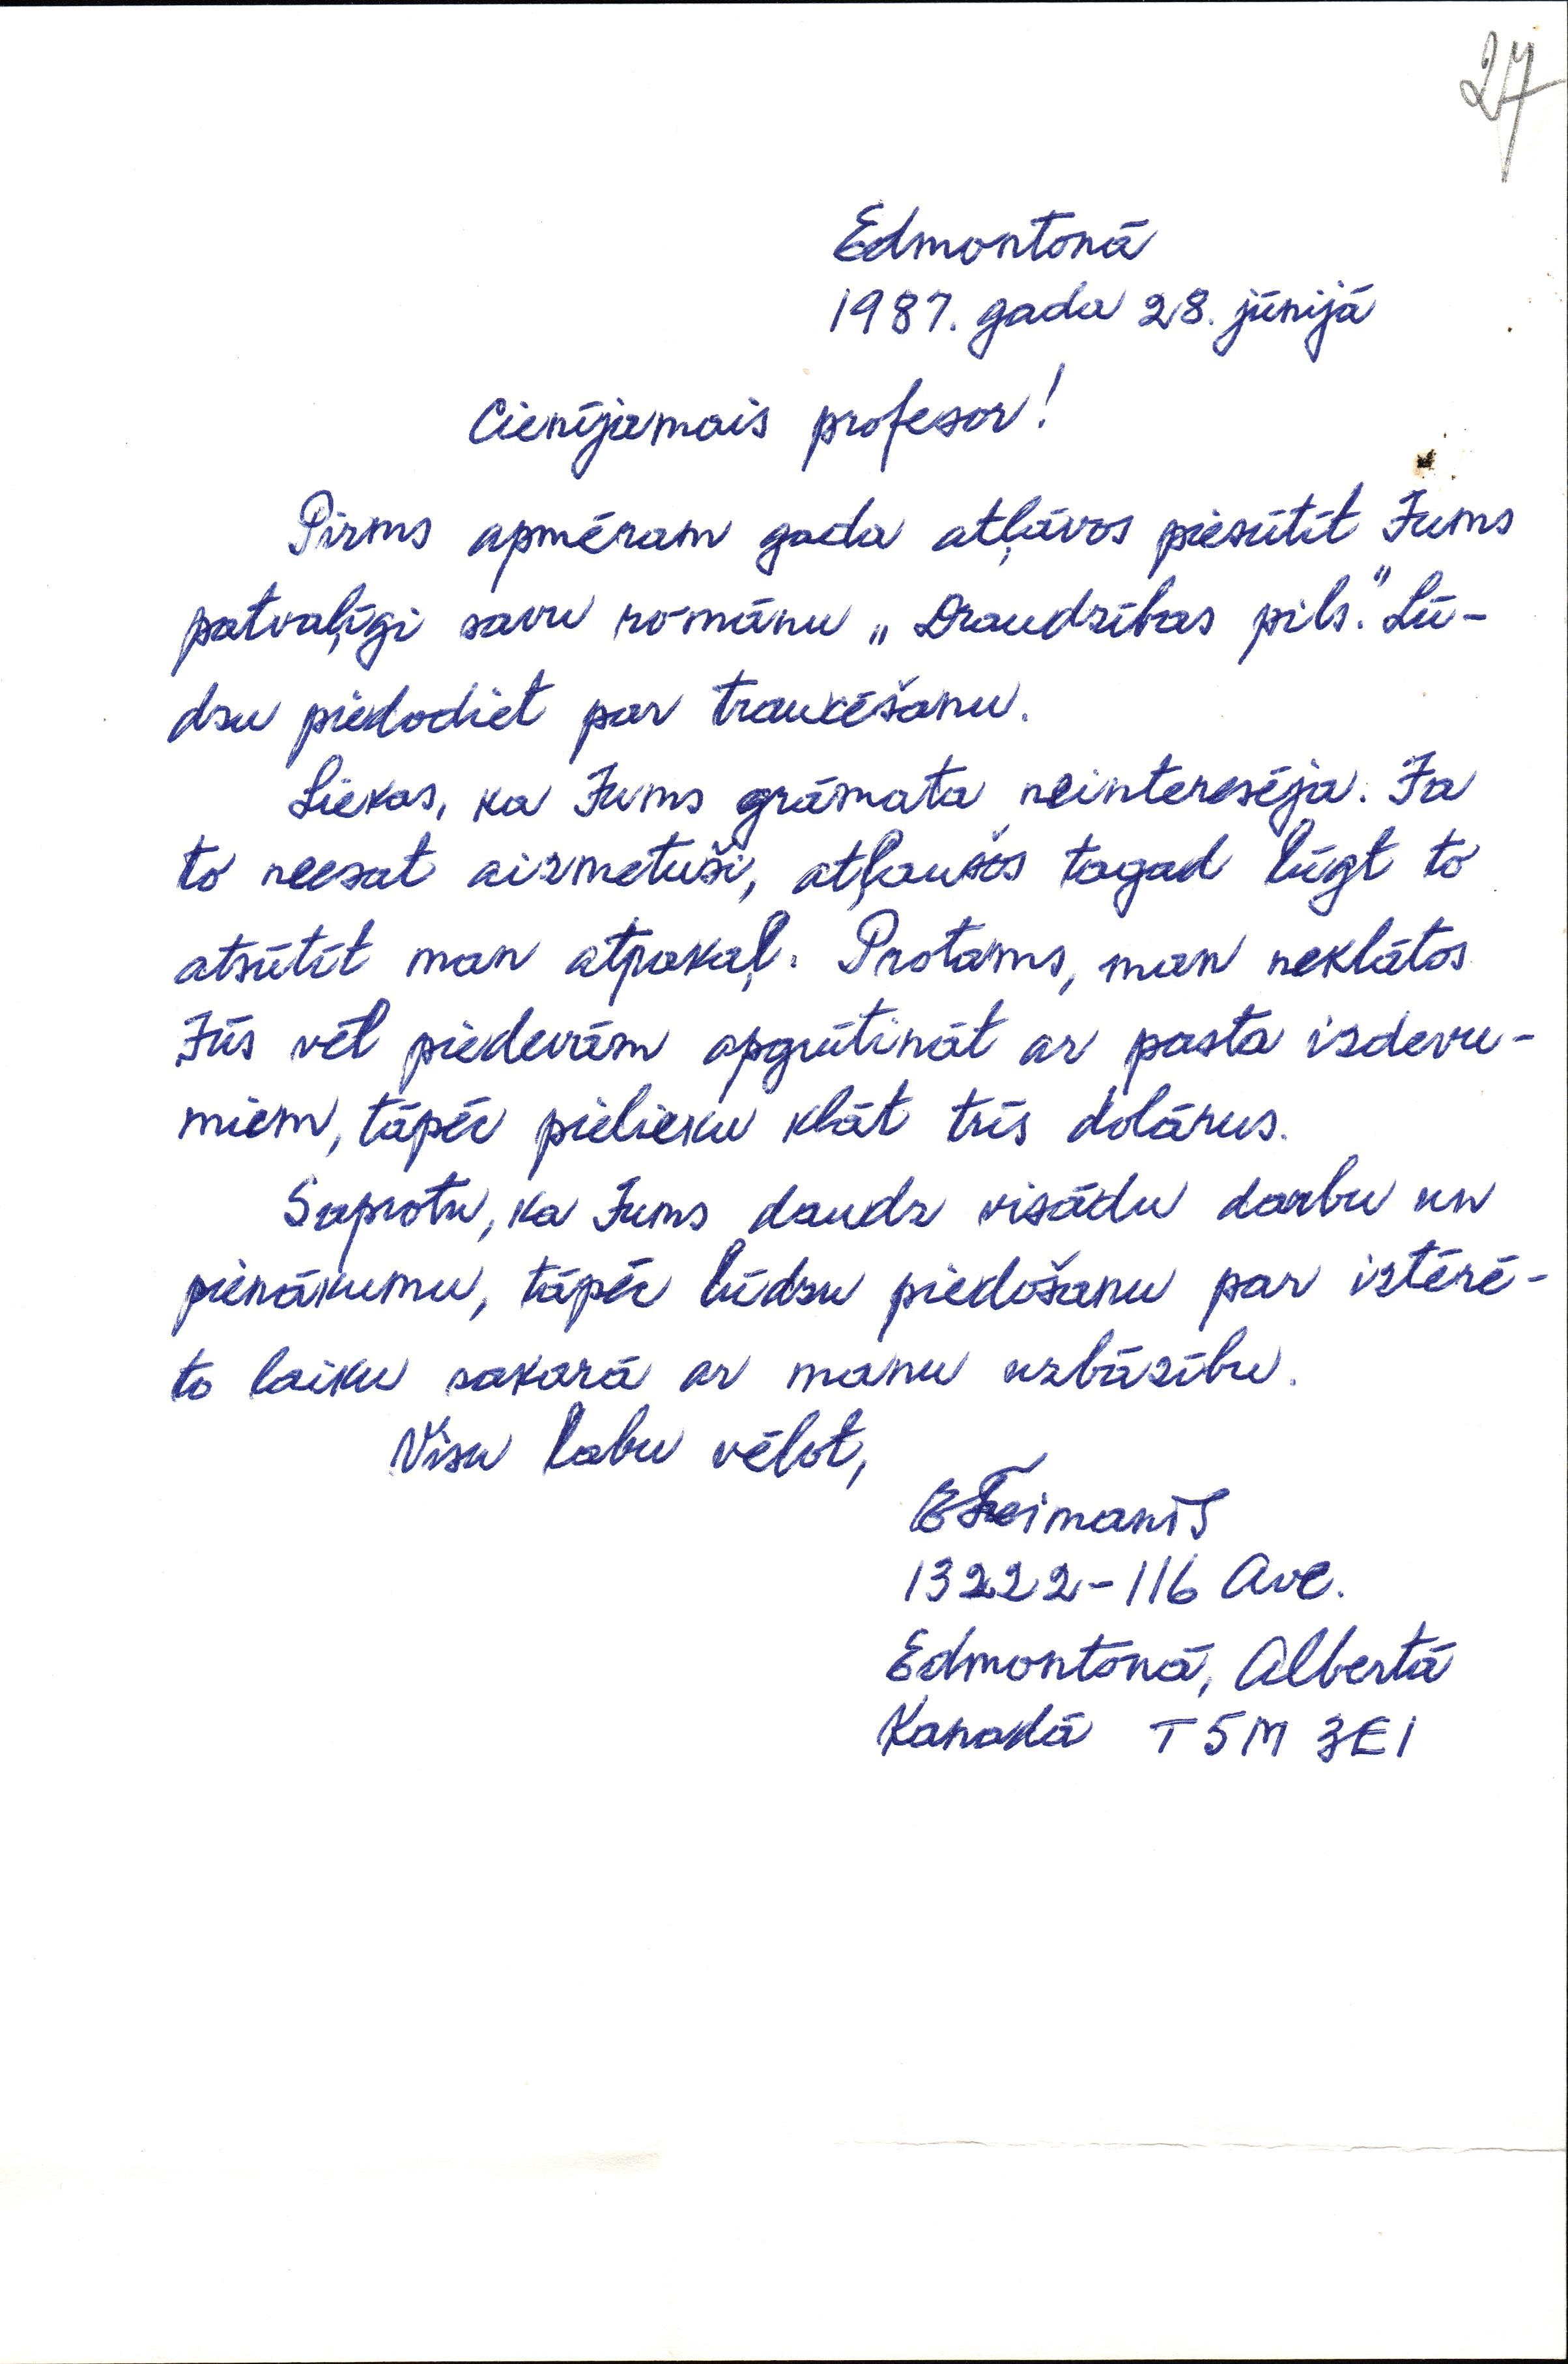 27
Edmontonā
1987. gada 28. jūnijā
Cienījamais profesor!
Pirms apmēram gada atļāvos piesūtīt Jums
patvaļīgi savu romānu „Draudzības pils." Lū-
dzu piedodiet par traucēšanu.
Liekas, ka Jums grāmata neinteresēja. Ja
to neesat aizmetuši, atļaušos tagad lūgt to
atsūtīt man atpakaļ. Protams, man neklātos
Jūs vēl piedevām apgrūtināt ar pasta izdevu-
miem, tāpēc pielieku klāt trīs dolārus.
Saprotu, ka Jums daudz visādu darbu un
pienākumu, tāpēc lūdzu piedošanu par iztērē-
to laiku sakarā ar manu uzbāzību.
Visu labu vēlot,
13222-116 Ave.
Edmontonā, Albertā
Kanadā T5M 3E1